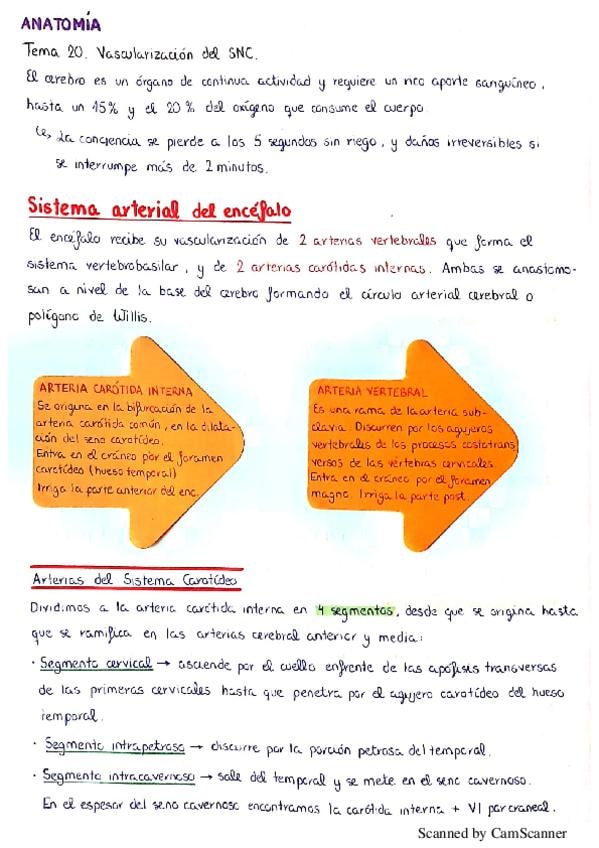 ANATOMÍA
Tema 20. Vascularización del SNC.
El cerebro es un órgano de continua actividad y requiere un rico aporte sanguíneo,
hasta un 15% y el 20% del oxígeno que consume el cuerpo.
↳ La conciencia se pierde a los 5 segundos sin riego, y daños irreversibles si
se interrumpe más de 2 minutos.
Sistema arterial del encéfalo
El encéfalo recibe su vascularización de 2 arterias vertebrales que forma el
sistema vertebrobasilar, y de 2 arterias carótidas internas. Ambas se anastomo-
san a nivel de la base del cerebro formando el círculo arterial cerebral o
polígono de Willis.
ARTERIA CARÓTIDA INTERNA
Se origina en la bifurcación de la
arteria carótida común, en la dilata-
ción del seno carotídeo.
Entra en el cráneo por el foramen
carotídeo (hueso temporal)
Irriga la parte anterior del enc.
ARTERIA VERTEBRAL
Es una rama de la arteria sub-
clavia. Discurren por los agujeros
vertebrales de los procesos costotrans
versos de las vértebras cervicales.
Entra en el cráneo por el foramen
magno. Irriga la parte post.
Arterias del Sistema Carotídeo
Dividimos a la arteria carótida interna en 4 segmentos, desde que se origina hasta
que se ramifica en las arterias cerebral anterior y media:
· Segmento cervical → asciende por el cuello enfrente de las apófisis transversas
de las primeras cervicales hasta que penetra por el agujero carotídeo del hueso
temporal.
· Segmento intrapetroso → discurre por la porción petrosa del temporal.
· Segmento intracavernoso → sale del temporal y se mete en el seno cavernoso.
En el espesor del seno cavernoso encontramos la carótida interna + VI par craneal.
Scanned by CamScanner